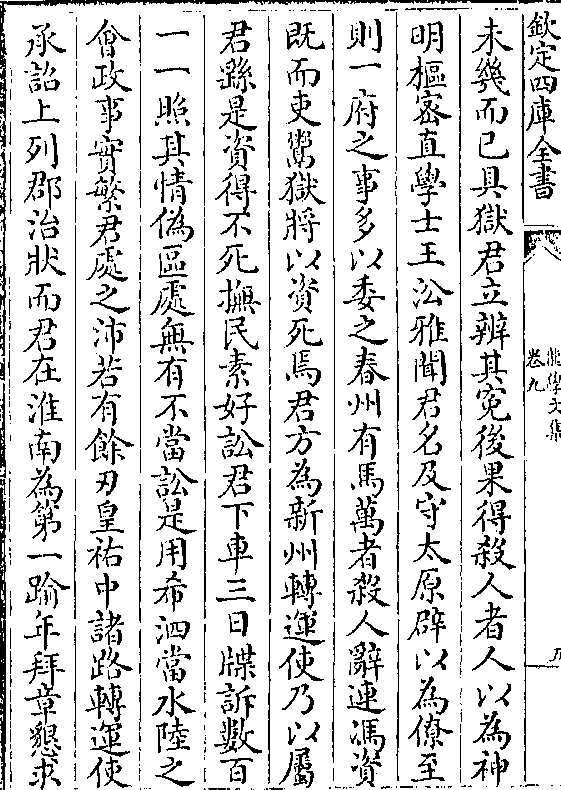 欽定四庫全書
龍學文集
卷九
五
未幾而已具獄君立辨其寃後果得殺人者人以為神
明樞密直學士王㳂雅聞君名及守太原辟以為僚至
則一府之事多以委之春州有馬萬者殺人辭連馮資
既而吏鬻獄將以資死焉君方為新州轉運使乃以屬
君繇是資得不死撫民素好訟君下車三日牒訴數百
一一照其情偽區處無有不當訟是用希泗當水陸之
會政事實繁君處之沛若有餘刃皇祐中諸路轉運使
承詔上列郡治狀而君在淮南為第一踰年拜章懇求